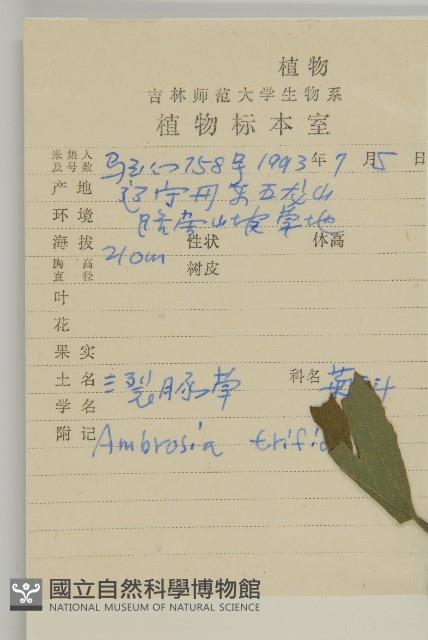 植物
吉林师范大学生物系
植物标本室
采集人及号数 758号 1993年 7月 5日
产地 辽宁丹东五龙山
环境 山坡草地
海拔 210m 性状 体高
胸高直径 树皮
叶
花
果实
土名 三裂豚草 科名 菊科
学名
附记 Ambrosia trifid
國立自然科學博物館
NATIONAL MUSEUM OF NATURAL SCIENCE